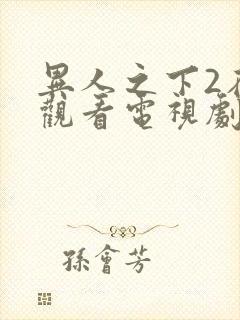 異人之下2
觀看電視劇
孫會芳